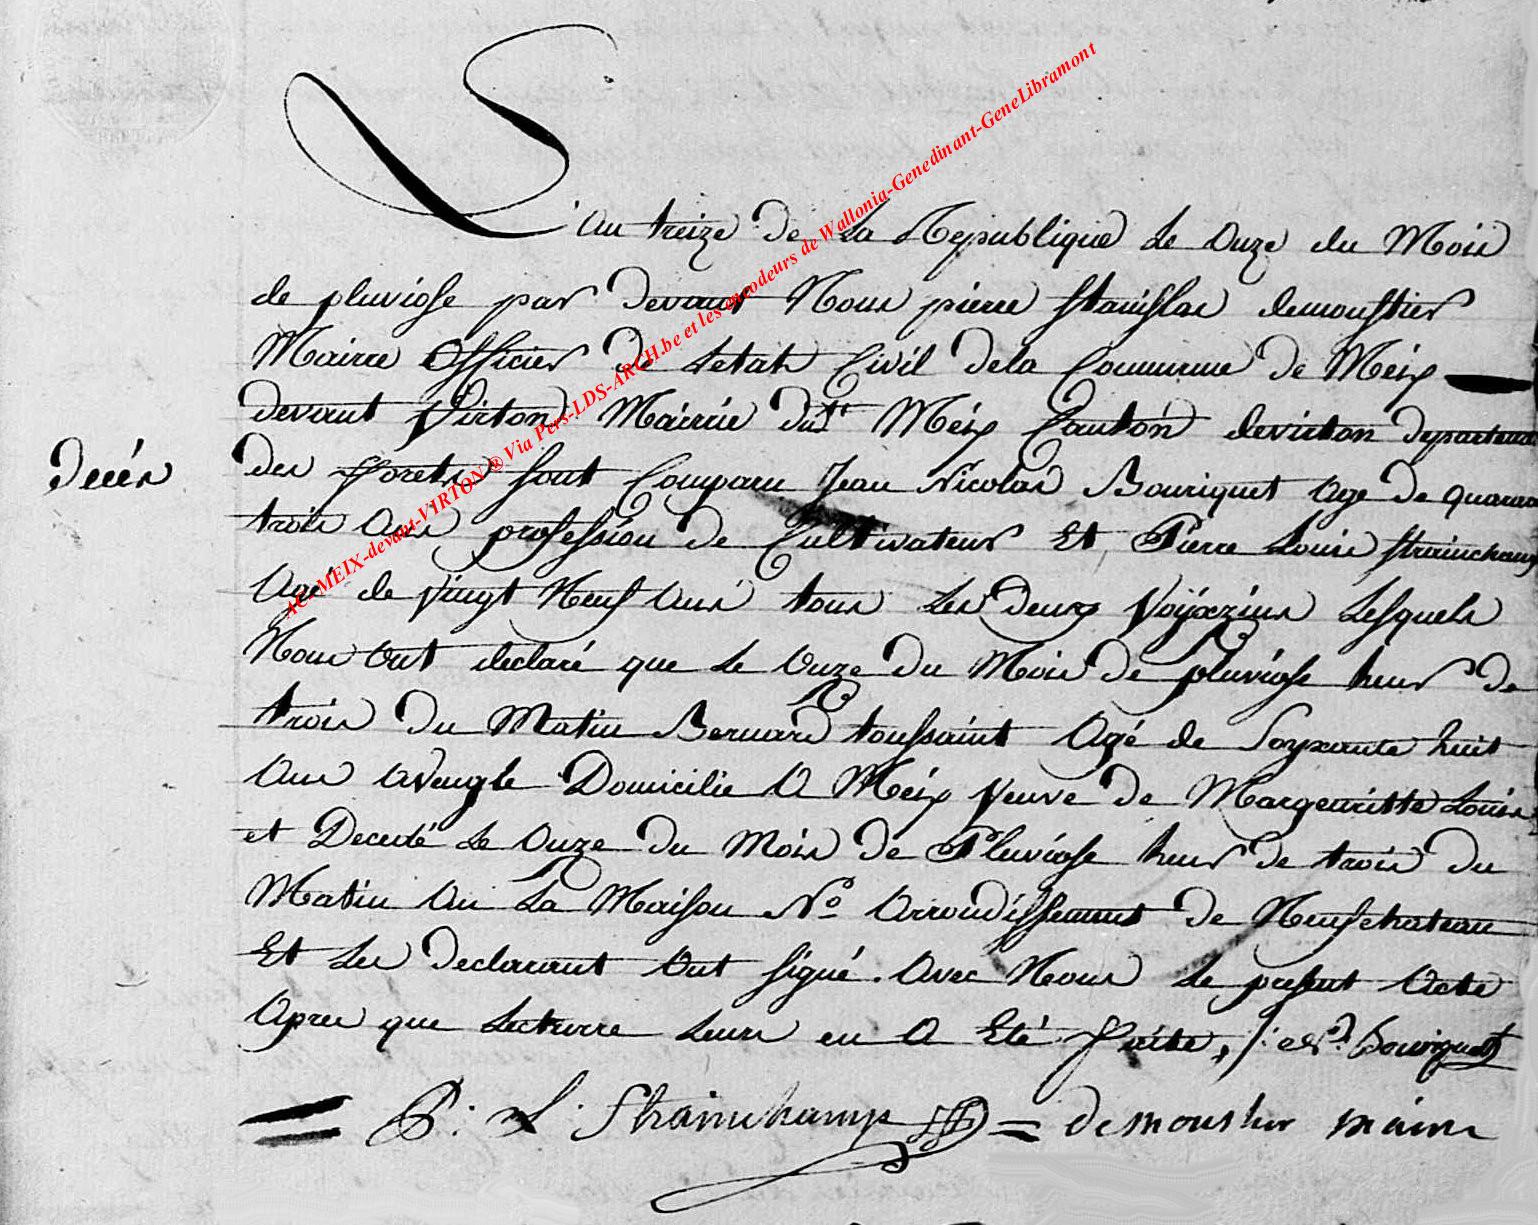 L'an treize de La Republique le onze du Mois
de pluviose par devant Nous pierre stanislas demoustier
Mairre officier de Letat Civil dela Commune de Méix
devant Virton Mairrie dudt Méix Canton devirton departem
decés
des forets sont Comparu Jean Nicolas Bouriquet age de quarante
trois ans profession de Cultivateur Et Pierre Louis strainchamps
Agé de vingt Neuf ans tous Les deux Voÿxzins Lesquels
Nous ont declaré que le onze du Mois de pluviose heur de
trois du Matin Bernard toussaint Agé de soyxante huit
ans aveugle Domicilie a Méix veuve de Margeuritte Louis
et Decedé le onze du Mois de Pluviose heur de trois du
Matin an La Maison No arrondissement de Neufchateau
Et Les declarant ont signé. avec Nous le present acte
apres que Lecturre Leurs en a Eté faite, J: N: Bouriquet
P: L: Strainchamps demoustier maire
AC-MEIX-devant-VIRTON ® Via Pers-LDS-ARCH.be et les encodeurs de Wallonia-Genedinant-GeneLibramont